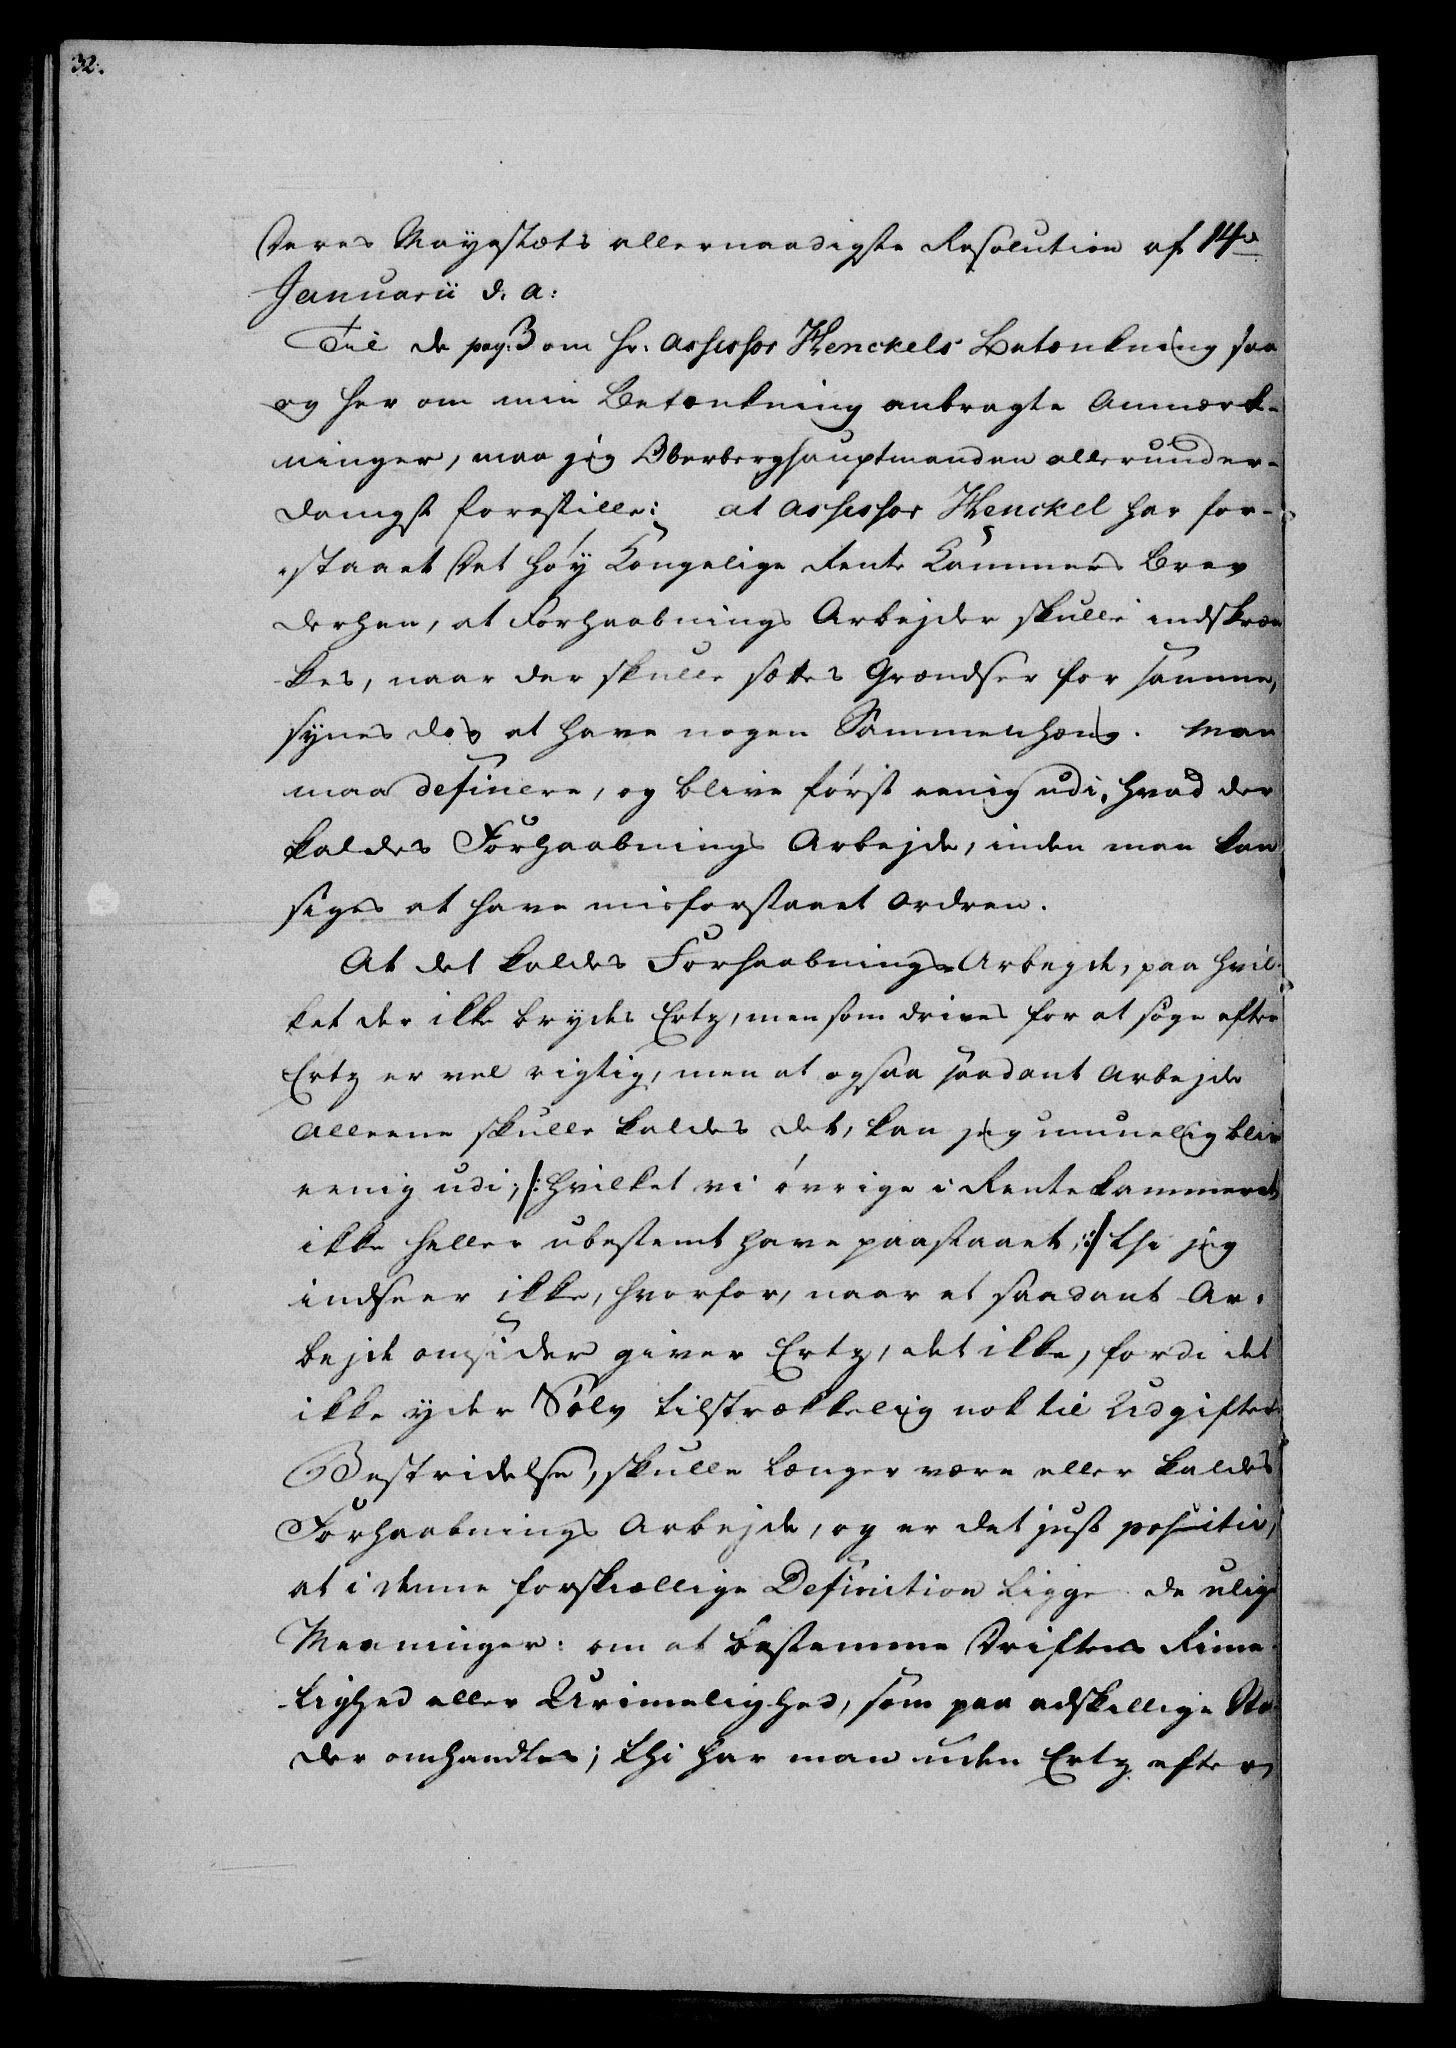 32.
Deres Mayestæts allernaadigste Resolution af 14de
Januarii d. a:
Til de pag: 3 om Hr. Assessor Henckels Betænkning saa
og her om min Betænkning anbragte Anmærk-
ninger, maa jeg Oberberghauptmanden allerunder-
danigst forestille: at Assessor Henckel har for-
staaet Det Høy Kongelige Rente Kammers Brev
derhen, at Forhaabnings Arbejder skulle indskræn
kes, naar der skulle sættes Grændser for samme,
synes dog at have nogen Sammenhæng. Man
maa definere, og blive først eenig udi, hvad der
kaldes Forhaabnings Arbejde, inden man kan
siges at have misforstaaet Ordren.
At det kaldes Forhaabnings Arbejde, paa hvil-
ket der ikke brydes Ertz, men som drives for at søge efter
Ertz er vel rigtig, men at ogsaa saadant Arbejde
alleene skulle kaldes det, kan jeg umuelig blive
eenig udi; /: hvilket vi øvrige i Rentekammeret
ikke heller ubestemt have paastaaet, :/ thi jeg
indseer ikke, hvorfor, naar et saadant Ar-
bejde omsider giver Ertz, det ikke, fordi det
ikke yder Sølv tilstrækkelig nok til Udgifters
Bestridelse, skulle længer være eller kaldes
Forhaabnings Arbejde, og er det just positiv,
at i denne forskiællige Definition ligge de ulige
Meeninger: om at bestemme Driftens Rime-
lighed eller Urimelighed, som paa adskillige Ste
der omhandles; thi har man uden Ertz efter